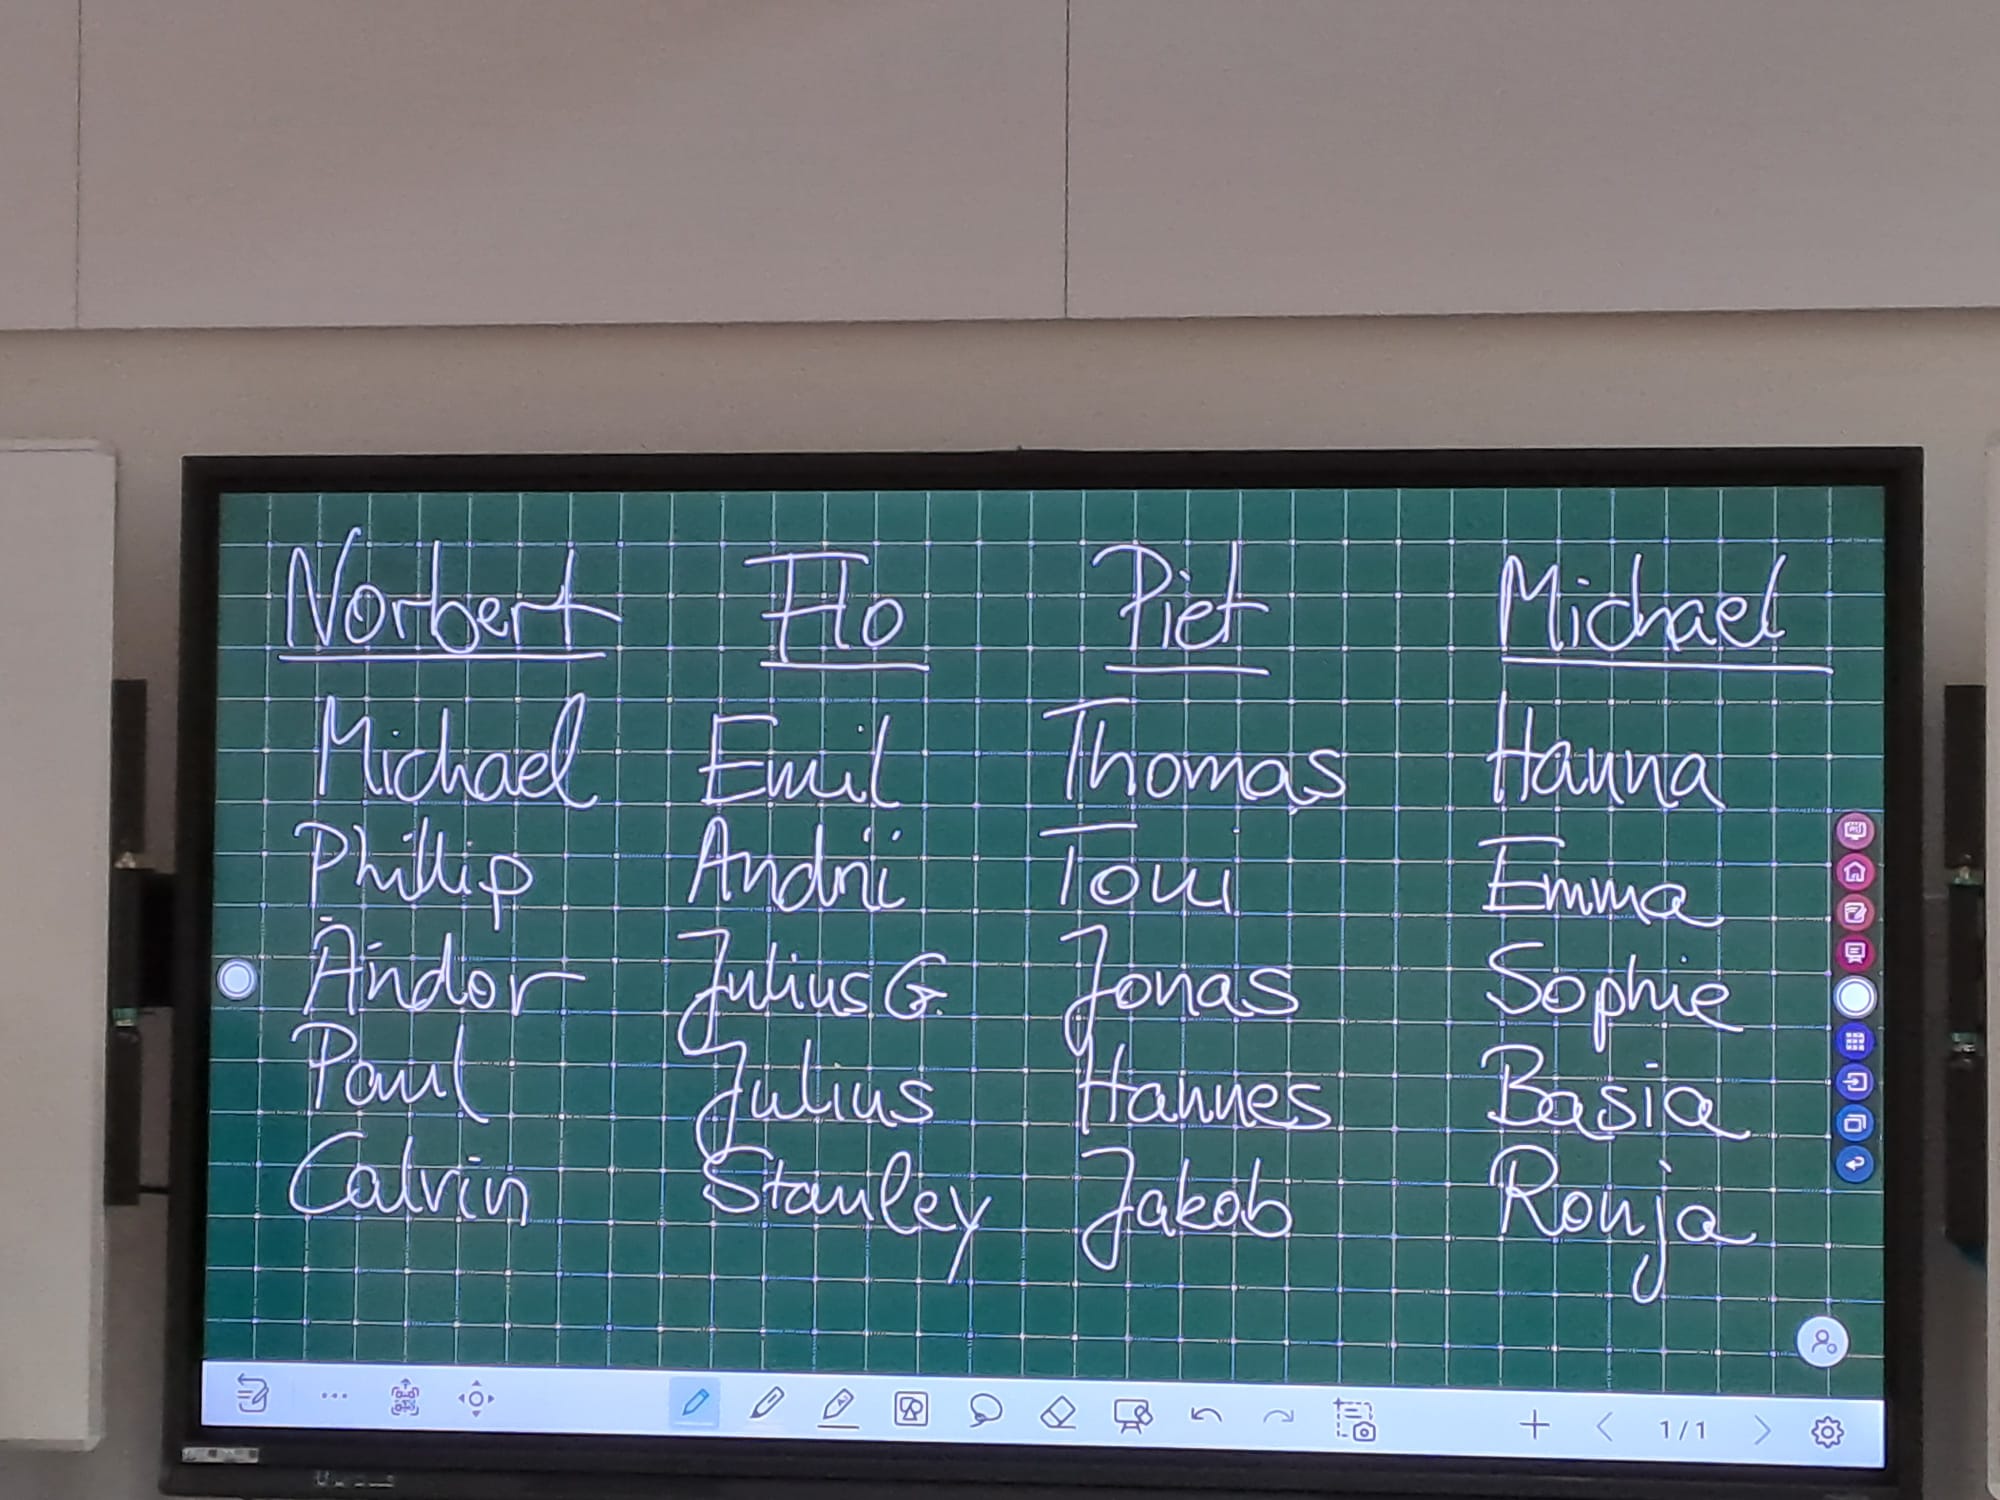 Norbert Flo Piet Michael
Michael Emil Thomas Hanna
Phillip Andrii Toni Emma
Andor Julius G. Jonas Sophie
Paul Julius Hannes Basia
Calvin Stanley Jakob Ronja
1/1